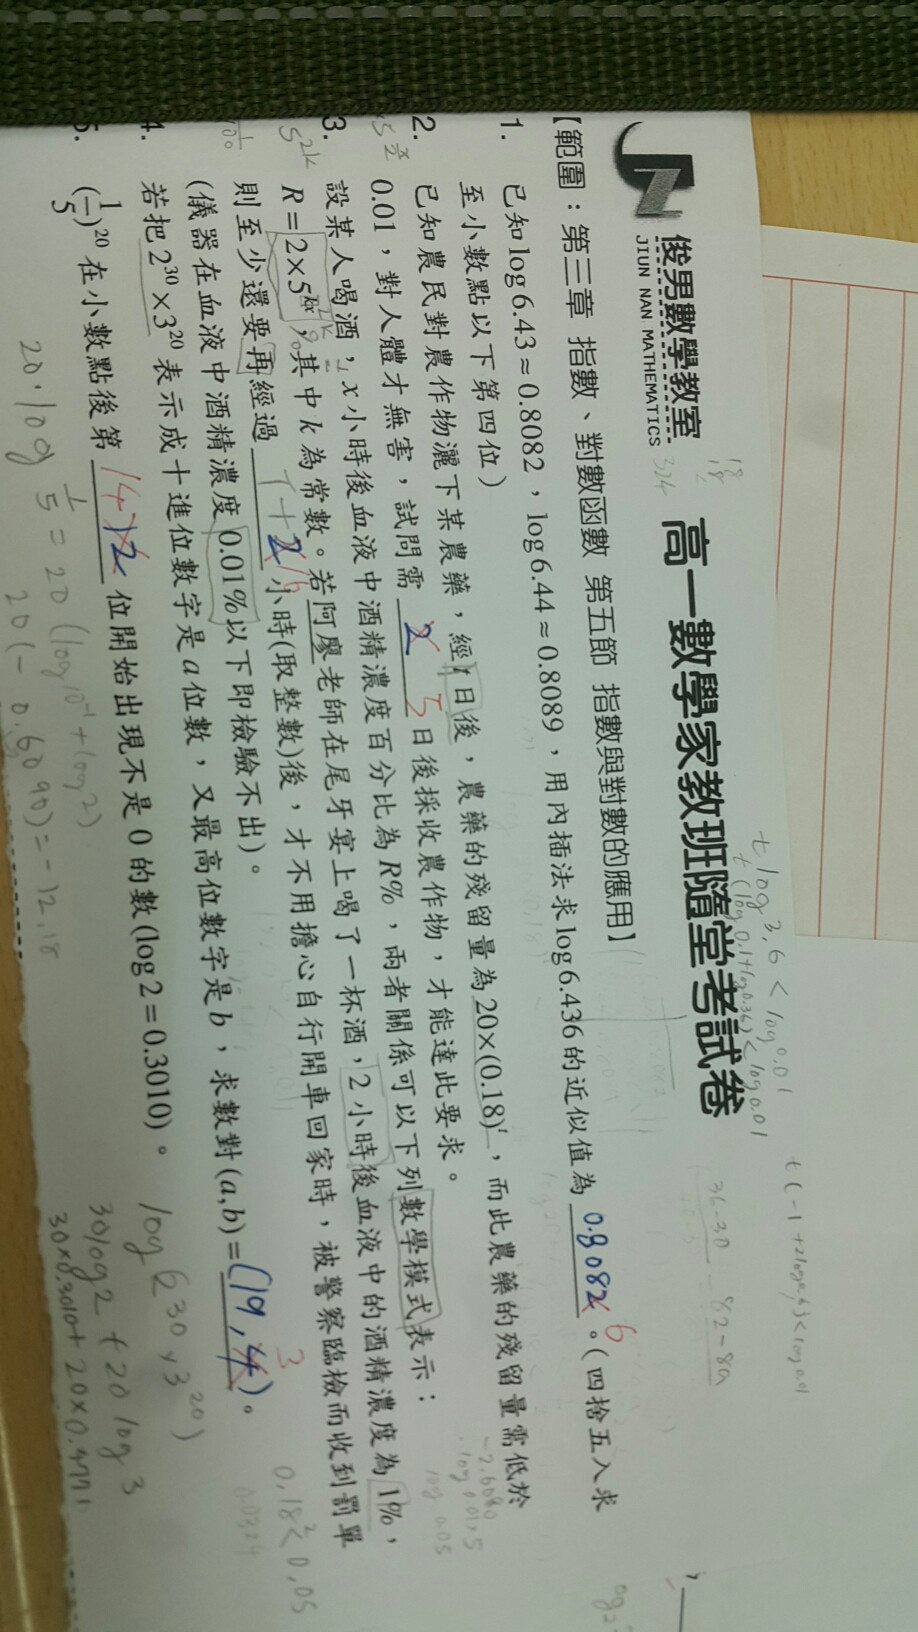 俊男數學教室
JIUN NAN MATHEMATICS
高一數學家教班隨堂考試卷
【範圍：第三章 指數、對數函數 第五節 指數與對數的應用】
1. 已知log6.43≈0.8082，log6.44≈0.8089，用內插法求log6.436的近似值為 0.8082 6 。(四捨五入求
至小數點以下第四位)
2. 已知農民對農作物灑下某農藥，經t日後，農藥的殘留量為20×(0.18)^t，而此農藥的殘留量需低於
0.01，對人體才無害，試問需 2 5 日後採收農作物，才能達此要求。
3. 設某人喝酒，x小時後血液中酒精濃度百分比為R%，兩者關係可以下列數學模式表示：
R=2×5^{kx}，其中k為常數。若阿廖老師在尾牙宴上喝了一杯酒，2小時後血液中的酒精濃度為1%，
則至少還要再經過 小時(取整數)後，才不用擔心自行開車回家時，被警察臨檢而收到罰單
(儀器在血液中酒精濃度0.01%以下即檢驗不出)。
4. 若把2^30×3^20表示成十進位數字是a位數，又最高位數字是b，求數對(a,b)=(19,4) 3。
5. (1/5)^20在小數點後第 14 12 位開始出現不是0的數(log2=0.3010)。
log(2^30×3^20)
30log2+20log3
30×0.3010+20×0.4771
20·log 1/5=20(log10^-1+log2)
20(-0.6090)=-12.18
t log 3.6<log0.01
t(log0.1+log0.36)<log0.01
36-30
82-89
0.18^2<0.05
0.0324
18
18
324
-2.6080
log 0.05
5^{2k}